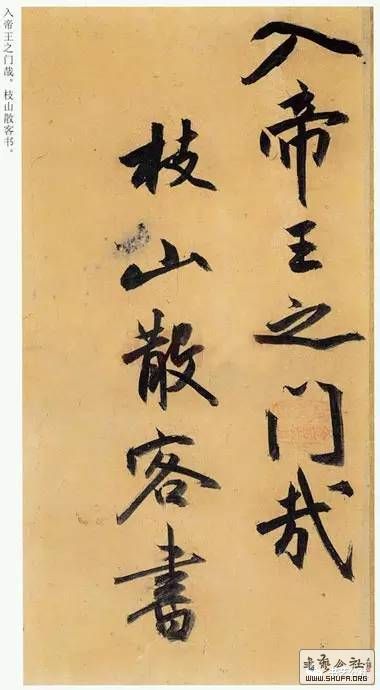 入帝王之门哉
枝山散客書
入帝王之门哉。枝山散客书。
WWW.SHUFA.ORG